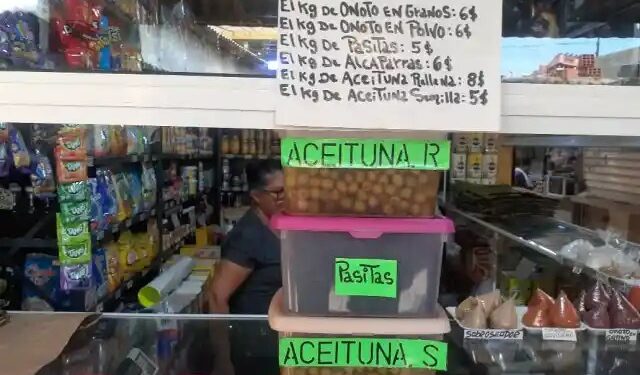 El Kg De ONOTO EN GRANOS: 6$
El Kg De ONOTO EN POLVO: 6$
El Kg De PASITAS: 5$
El Kg De ALCAPARRAS: 6$
El Kg De ACEITUNA Rellena: 8$
El Kg De ACEITUNA Semilla: 5$
ACEITUNA, R
PASITAS
ACEITUNA, S